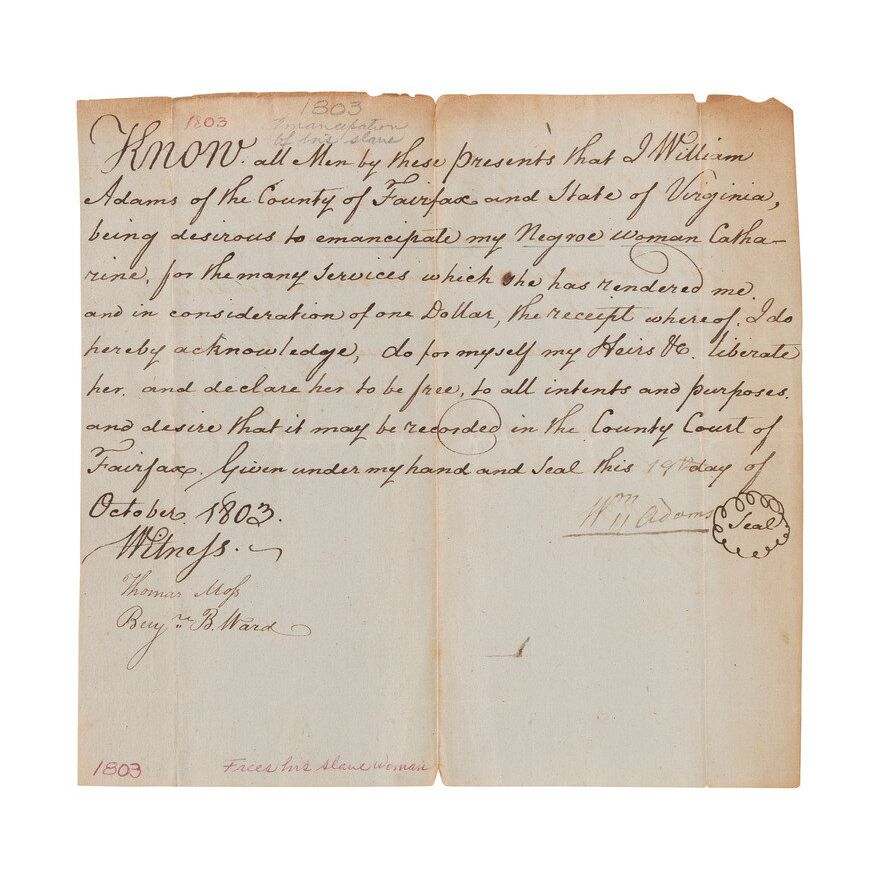 1803
1803
Emancipation
of his slave
Know. all Men by these presents that I William
Adams of the County of Fairfax and State of Virginia,
being desirous to emancipate my Negroe woman Catha-
rine, for the many Services which she has rendered me.
and in consideration of one Dollar, the receipt whereof. I do
hereby acknowledge, do for myself my Heirs &c. liberate
her. and declare her to be free, to all intents and purposes.
and desire that it may be recorded in the County Court of
Fairfax. Given under my hand and Seal this 19th day of
October. 1803.
Wm Adams Seal
Witness.
Thomas Moss
Benjn B. Ward
1803 Frees his slave woman